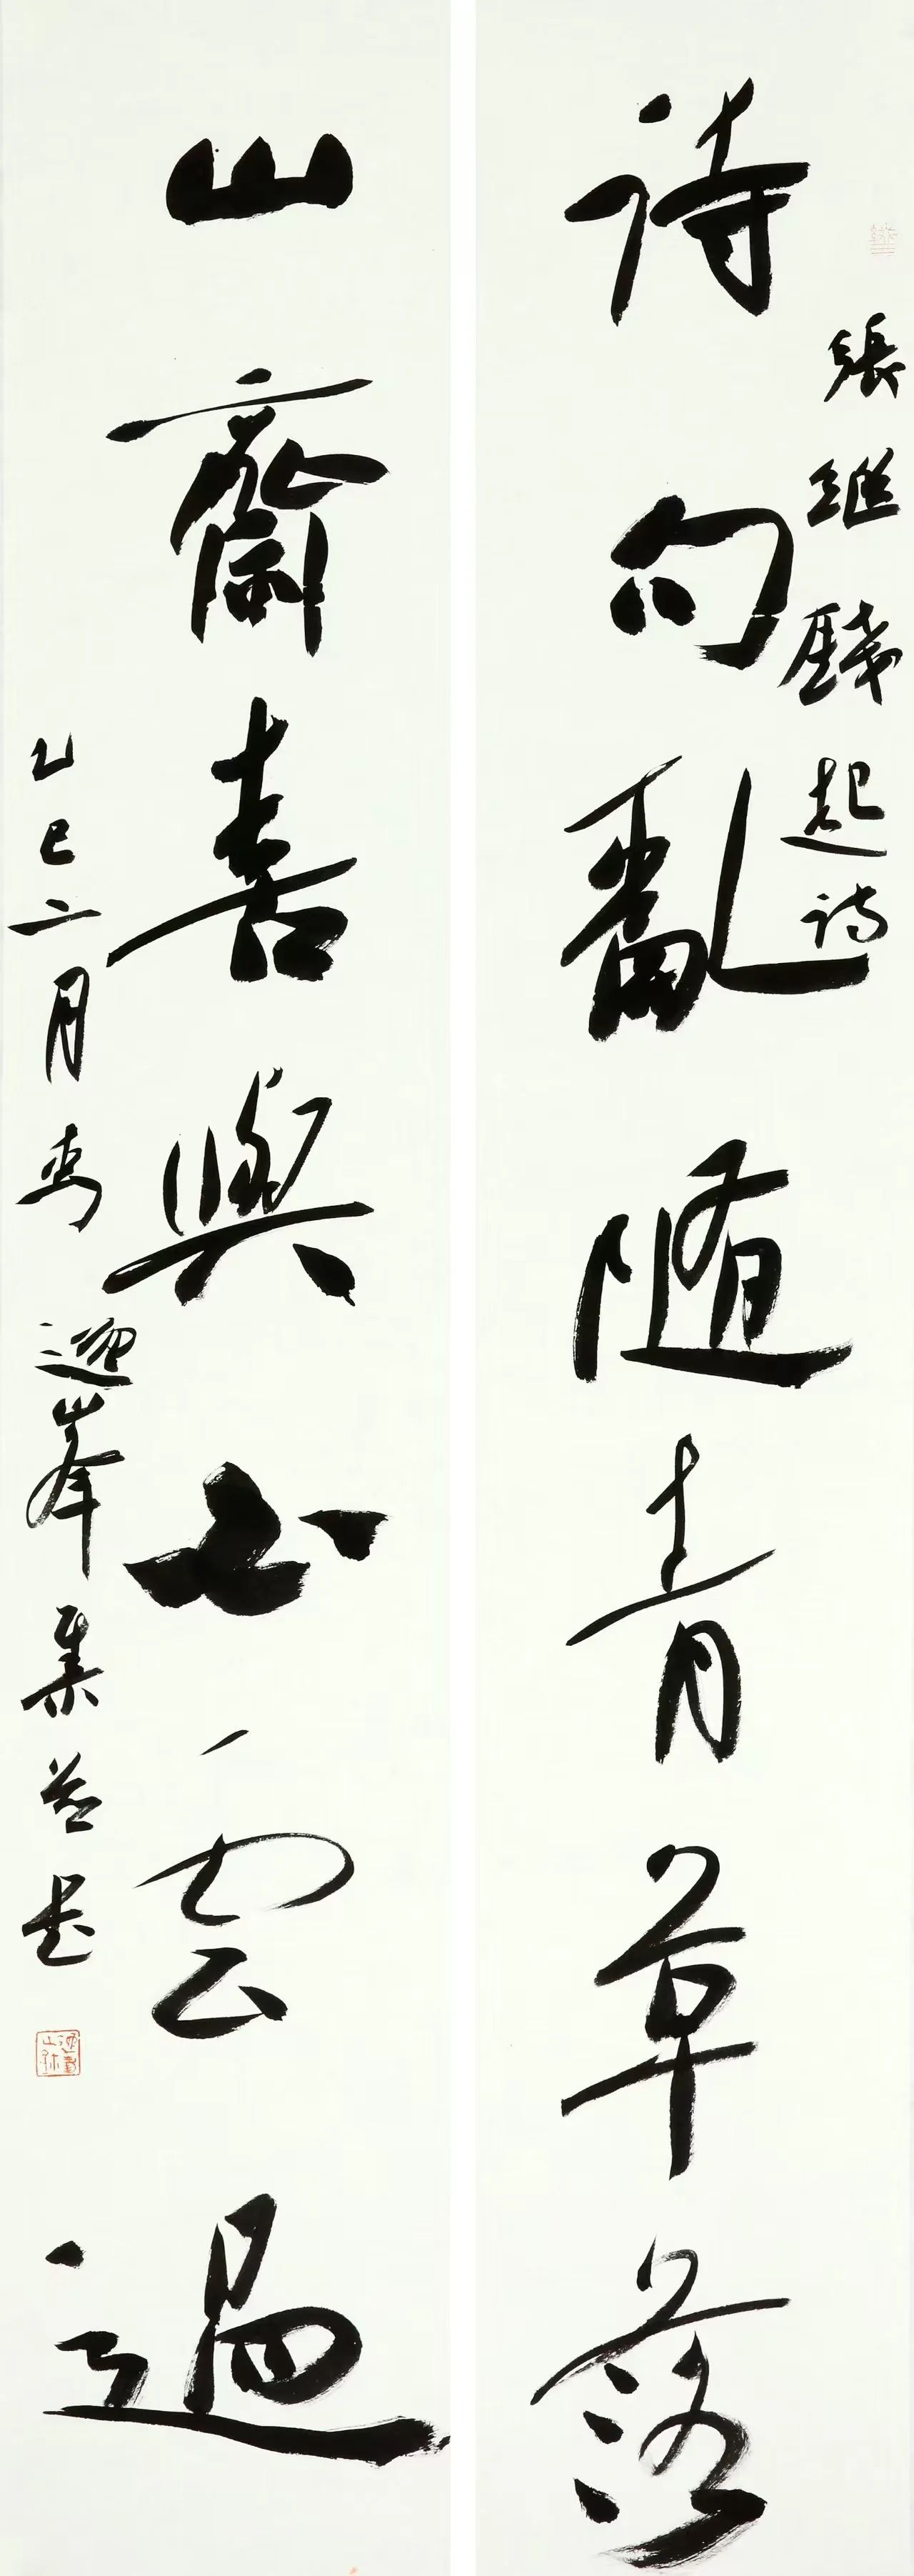 詩句亂隨青草落
張繼錢起詩
山齋喜與白雲過
乙巳二月
峯集并書